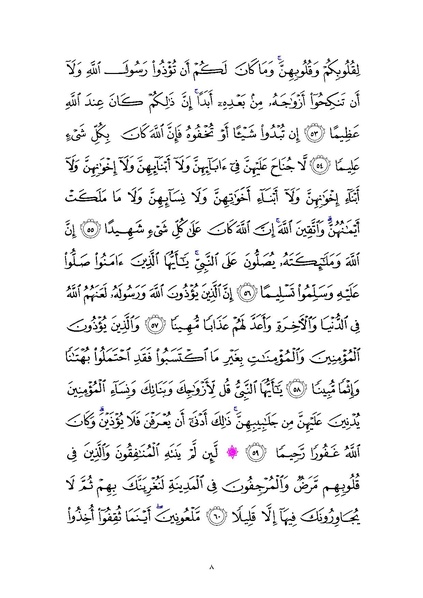 لِقُلُوبِكُمْ وَقُلُوبِهِنَّ ۚ وَمَا كَانَ لَكُمْ أَن تُؤْذُوا۟ رَسُولَ ٱللَّهِ وَلَآ
أَن تَنكِحُوٓا۟ أَزْوَٰجَهُۥ مِنۢ بَعْدِهِۦٓ أَبَدًا ۚ إِنَّ ذَٰلِكُمْ كَانَ عِندَ ٱللَّهِ
عَظِيمًا ﴿٥٣﴾ إِن تُبْدُوا۟ شَيْـًٔا أَوْ تُخْفُوهُ فَإِنَّ ٱللَّهَ كَانَ بِكُلِّ شَىْءٍ
عَلِيمًا ﴿٥٤﴾ لَّا جُنَاحَ عَلَيْهِنَّ فِىٓ ءَابَآئِهِنَّ وَلَآ أَبْنَآئِهِنَّ وَلَآ إِخْوَٰنِهِنَّ وَلَآ
أَبْنَآءِ إِخْوَٰنِهِنَّ وَلَآ أَبْنَآءِ أَخَوَٰتِهِنَّ وَلَا نِسَآئِهِنَّ وَلَا مَا مَلَكَتْ
أَيْمَٰنُهُنَّ ۗ وَٱتَّقِينَ ٱللَّهَ ۚ إِنَّ ٱللَّهَ كَانَ عَلَىٰ كُلِّ شَىْءٍ شَهِيدًا ﴿٥٥﴾ إِنَّ
ٱللَّهَ وَمَلَٰٓئِكَتَهُۥ يُصَلُّونَ عَلَى ٱلنَّبِىِّ ۚ يَٰٓأَيُّهَا ٱلَّذِينَ ءَامَنُوا۟ صَلُّوا۟
عَلَيْهِ وَسَلِّمُوا۟ تَسْلِيمًا ﴿٥٦﴾ إِنَّ ٱلَّذِينَ يُؤْذُونَ ٱللَّهَ وَرَسُولَهُۥ لَعَنَهُمُ ٱللَّهُ
فِى ٱلدُّنْيَا وَٱلْءَاخِرَةِ وَأَعَدَّ لَهُمْ عَذَابًا مُّهِينًا ﴿٥٧﴾ وَٱلَّذِينَ يُؤْذُونَ
ٱلْمُؤْمِنِينَ وَٱلْمُؤْمِنَٰتِ بِغَيْرِ مَا ٱكْتَسَبُوا۟ فَقَدِ ٱحْتَمَلُوا۟ بُهْتَٰنًا
وَإِثْمًا مُّبِينًا ﴿٥٨﴾ يَٰٓأَيُّهَا ٱلنَّبِىُّ قُل لِّأَزْوَٰجِكَ وَبَنَاتِكَ وَنِسَآءِ ٱلْمُؤْمِنِينَ
يُدْنِينَ عَلَيْهِنَّ مِن جَلَٰبِيبِهِنَّ ۚ ذَٰلِكَ أَدْنَىٰٓ أَن يُعْرَفْنَ فَلَا يُؤْذَيْنَ ۗ وَكَانَ
ٱللَّهُ غَفُورًا رَّحِيمًا ﴿٥٩﴾ ۞ لَّئِن لَّمْ يَنتَهِ ٱلْمُنَٰفِقُونَ وَٱلَّذِينَ فِى
قُلُوبِهِم مَّرَضٌ وَٱلْمُرْجِفُونَ فِى ٱلْمَدِينَةِ لَنُغْرِيَنَّكَ بِهِمْ ثُمَّ لَا
يُجَاوِرُونَكَ فِيهَآ إِلَّا قَلِيلًا ﴿٦٠﴾ مَّلْعُونِينَ ۖ أَيْنَمَا ثُقِفُوٓا۟ أُخِذُوا۟
٨